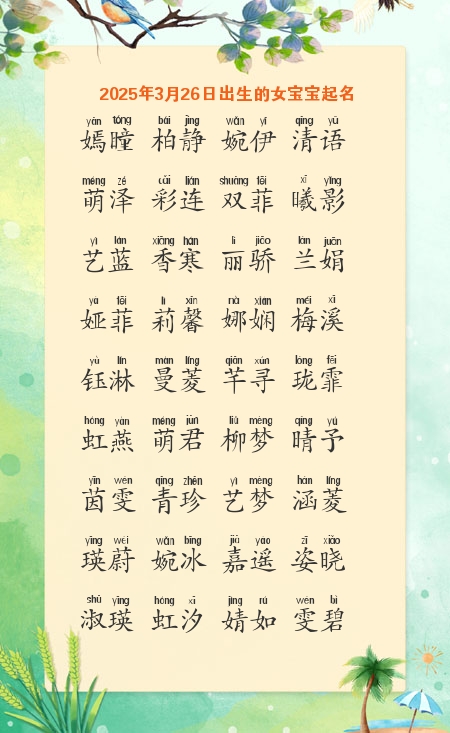 2025年3月26日出生的女宝宝起名
yān tóng bǎi jìng wǎn yī qīng yǔ
嫣瞳 柏静 婉伊 清语
méng zé cǎi lián shuāng fēi xī yǐng
萌泽 彩连 双菲 曦影
yì lán xiāng hán lì jiāo lán juān
艺蓝 香寒 丽骄 兰娟
yà fēi lì xīn nà xián méi xī
娅菲 莉馨 娜娴 梅溪
yù lín màn líng qiān xún lóng fēi
钰淋 曼菱 芊寻 珑霏
hóng yàn méng jūn liǔ mèng qíng yú
虹燕 萌君 柳梦 晴予
yīn wén qīng zhēn yì mèng hán líng
茵雯 青珍 艺梦 涵菱
yīng wèi wǎn bīng jiā yáo zī xiǎo
瑛蔚 婉冰 嘉遥 姿晓
shū yīng hóng xī jìng rú wén bì
淑瑛 虹汐 婧如 雯碧